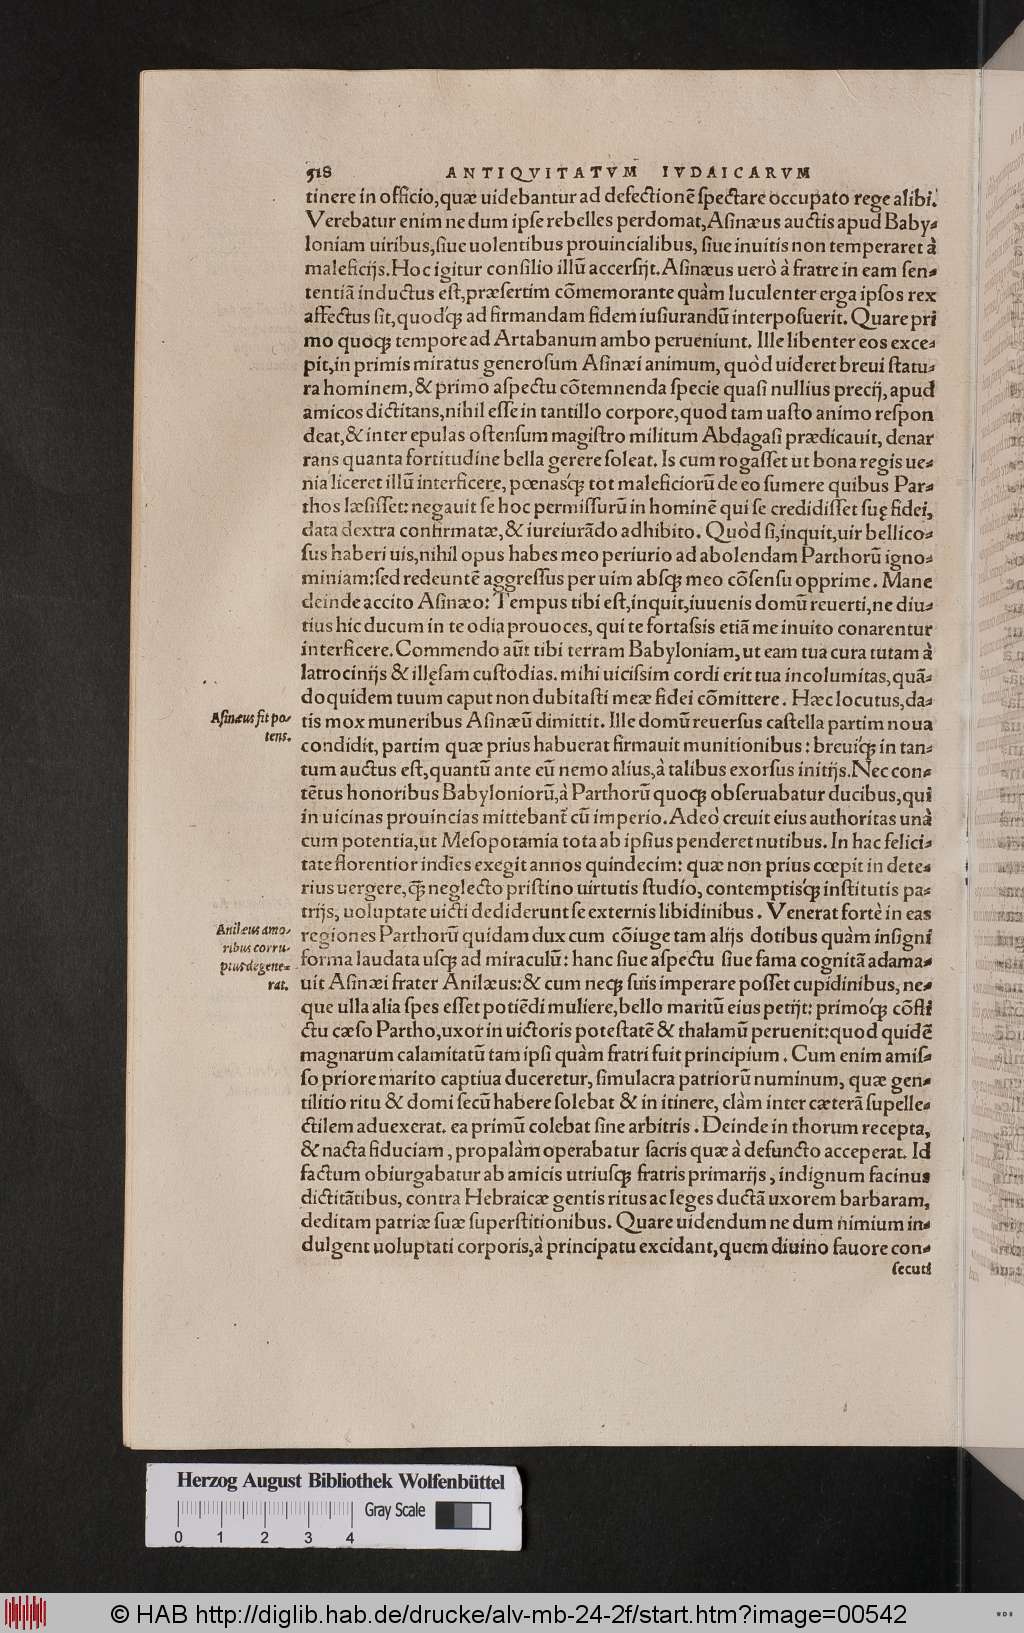 518 ANTIQVITATVM IVDAICARVM
tinere in officio,quæ uidebantur ad defectionē ſpectare occupato rege alibi.
Verebatur enim ne dum ipſe rebelles perdomat,Aſinæus auctis apud Baby-
loniam uiribus,ſiue uolentibus prouincialibus, ſiue inuitis non temperaret à
maleficijs.Hoc igitur conſilio illū accerſijt.Aſinæus uerò à fratre in eam ſen-
tentiā inductus eſt,præſertim cōmemorante quàm luculenter erga ipſos rex
affectus ſit,quod́q; ad firmandam fidem iuſiurandū interpoſuerit. Quare pri
mo quoq; tempore ad Artabanum ambo perueniunt. Ille libenter eos exce-
pit,in primis miratus generoſum Aſinæi animum, quòd uideret breui ſtatu-
ra hominem,& primo aſpectu cōtemnenda ſpecie quaſi nullius precij,apud
amicos dictitans,nihil eſſe in tantillo corpore,quod tam uaſto animo reſpon
deat,& inter epulas oſtenſum magiſtro militum Abdagaſi prædicauit, denar
rans quanta fortitudine bella gerere ſoleat. Is cum rogaſſet ut bona regis ue-
nia liceret illū interficere, pœnasq; tot maleficiorū de eo ſumere quibus Par-
thos læſiſſet: negauit ſe hoc permiſſurū in hominē qui ſe credidiſſet ſuę fidei,
data dextra confirmatæ,& iureiurādo adhibito. Quòd ſi,inquit,uir bellico-
ſus haberi uis,nihil opus habes meo periurio ad abolendam Parthorū igno-
miniam:ſed redeuntē aggreſſus per uim abſq; meo cōſenſu opprime. Mane
deinde accito Aſinæo: Tempus tibi eſt,inquit,iuuenis domū reuerti,ne diu-
tius hic ducum in te odia prouoces, qui te fortaſsis etiā me inuito conarentur
interficere.Commendo aūt tibi terram Babyloniam,ut eam tua cura tutam à
latrocinijs & illęſam cuſtodias. mihi uiciſsim cordi erit tua incolumitas,quā-
doquidem tuum caput non dubitaſti meæ fidei cōmittere. Hæc locutus,da-
Aſinæus fit po- tis mox muneribus Aſinæū dimittit. Ille domū reuerſus caſtella partim noua
tens. condidit, partim quæ prius habuerat firmauit munitionibus: breuíq; in tan-
tum auctus eſt,quantū ante eū nemo alius,à talibus exorſus initijs.Nec con-
tētus honoribus Babyloniorū,à Parthorū quoq; obſeruabatur ducibus,qui
in uicinas prouincias mittebant̄ cū imperio.Adeò creuit eius authoritas unà
cum potentia,ut Meſopotamia tota ab ipſius penderet nutibus. In hac felici-
tate florentior indies exegit annos quindecim: quæ non prius cœpit in dete-
rius uergere,q̄ neglecto priſtino uirtutis ſtudio, contemptisq́; inſtitutis pa-
trijs, uoluptate uicti dediderunt ſe externis libidinibus. Venerat fortè in eas
Anilæus amo- regiones Parthorū quidam dux cum cōiuge tam alijs dotibus quàm inſigni
ribus corru- forma laudata uſq; ad miraculū: hanc ſiue aſpectu ſiue fama cognitā adama-
ptus degene- uit Aſinæi frater Anilæus:& cum neq; ſuis imperare poſſet cupidinibus, ne-
rat. que ulla alia ſpes eſſet potiēdi muliere,bello maritū eius petijt: primoq́; cōfli
ctu cæſo Partho,uxor in uictoris poteſtatē & thalamū peruenit:quod quidē
magnarum calamitatū tam ipſi quàm fratri fuit principium. Cum enim amiſ-
ſo priore marito captiua duceretur, ſimulacra patriorū numinum, quæ gen-
tilitio ritu & domi ſecū habere ſolebat & in itinere, clàm inter cæterā ſupelle-
ctilem aduexerat. ea primū colebat ſine arbitris. Deinde in thorum recepta,
& nacta fiduciam, propalàm operabatur ſacris quæ à defuncto acceperat. Id
factum obiurgabatur ab amicis utriuſq; fratris primarijs, indignum facinus
dictitātibus, contra Hebraicæ gentis ritus ac leges ductā uxorem barbaram,
deditam patriæ ſuæ ſuperſtitionibus. Quare uidendum ne dum nimium in-
dulgent uoluptati corporis,à principatu excidant,quem diuino fauore con-
ſecuti
Herzog August Bibliothek Wolfenbüttel
Gray Scale
0 1 2 3 4
© HAB http://diglib.hab.de/drucke/alv-mb-24-2f/start.htm?image=00542